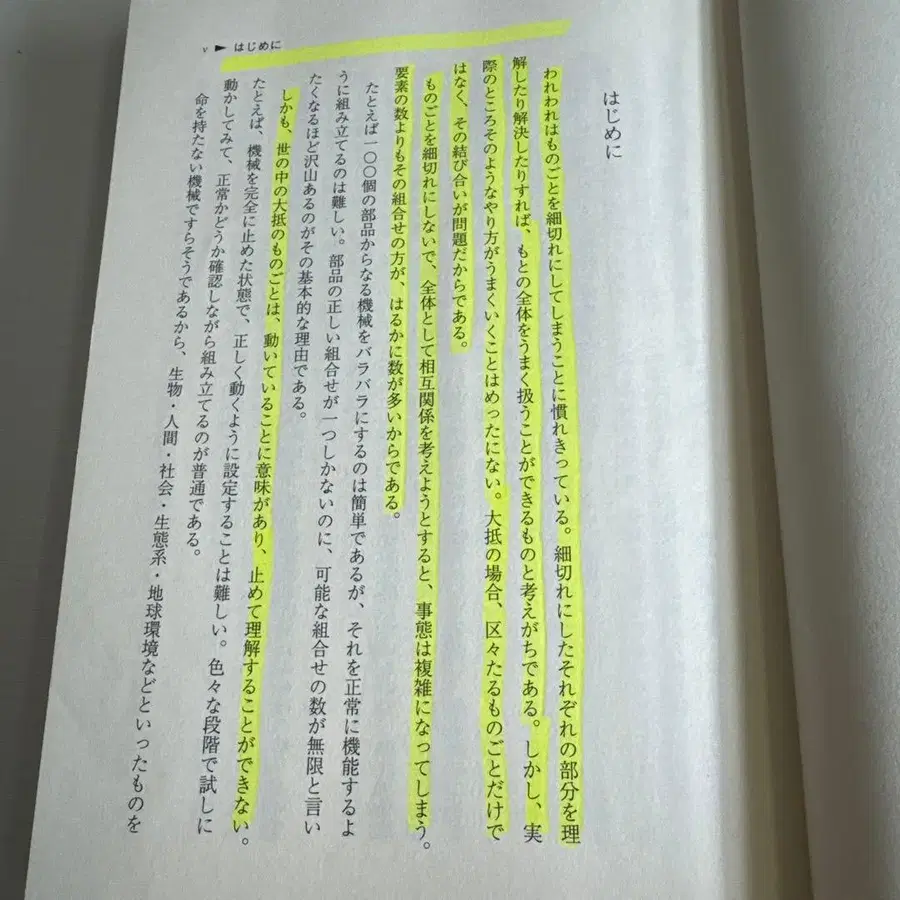 v ► はじめに
はじめに
われわれはものごとを細切れにしてしまうことに慣れきっている。細切れにしたそれぞれの部分を理
解したり解決したりすれば、もとの全体をうまく扱うことができるものと考えがちである。しかし、実
際のところそのようなやり方がうまくいくことはめったにない。大抵の場合、区々たるものごとだけで
はなく、その結び合いが問題だからである。
ものごとを細切れにしないで、全体として相互関係を考えようとすると、事態は複雑になってしまう。
要素の数よりもその組合せの方が、はるかに数が多いからである。
たとえば一〇〇個の部品からなる機械をバラバラにするのは簡単であるが、それを正常に機能するよ
うに組み立てるのは難しい。部品の正しい組合せが一つしかないのに、可能な組合せの数が無限と言い
たくなるほど沢山あるのがその基本的な理由である。
しかも、世の中の大抵のものごとは、動いていることに意味があり、止めて理解することができない。
たとえば、機械を完全に止めた状態で、正しく動くように設定することは難しい。色々な段階で試しに
動かしてみて、正常かどうか確認しながら組み立てるのが普通である。
命を持たない機械ですらそうであるから、生物・人間・社会・生態系・地球環境などといったものを